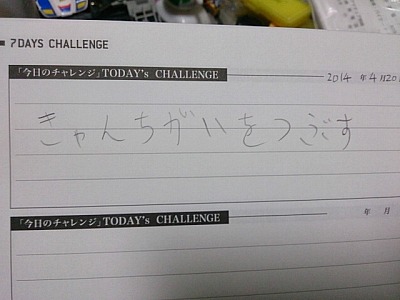 7DAYS CHALLENGE
「今日のチャレンジ」TODAY's CHALLENGE
2014 年 4月20
きゃんちがいをつぶす
「今日のチャレンジ」TODAY's CHALLENGE
年 月